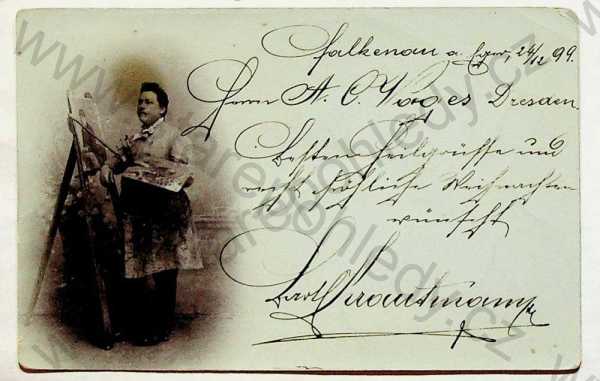 Falkenau a. Eger, 24/12 99.
Herrn A. C. Voges Dresden
Besten Heilgrüsse und
recht fröhliche Weihnachten
wünscht
Karl Trautmann
www.starepohledy.cz